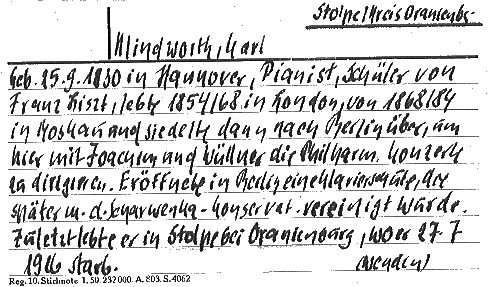 Stolpe/Kreis Oranienbg.
Klindworth, Karl
Geb. 25.9.1830 in Hannover, Pianist, Schüler von
Franz Liszt, lebte 1854/68 in London, von 1868/84
in Moskau und siedelte dann nach Berlin über, um
hier mit Joachim und Wüllner die Philharm. Konzerte
zu dirigieren. Eröffnete in Berlin eine Klavierschule, die
später m. d. Scharwenka-Konservat. vereinigt wurde.
Zuletzt lebte er in Stolpe bei Oranienburg, wo er 27.7
1916 starb. (Wenden)
Reg. 10. Stichnote 1. 50. 232000. A. 803. S. 4062